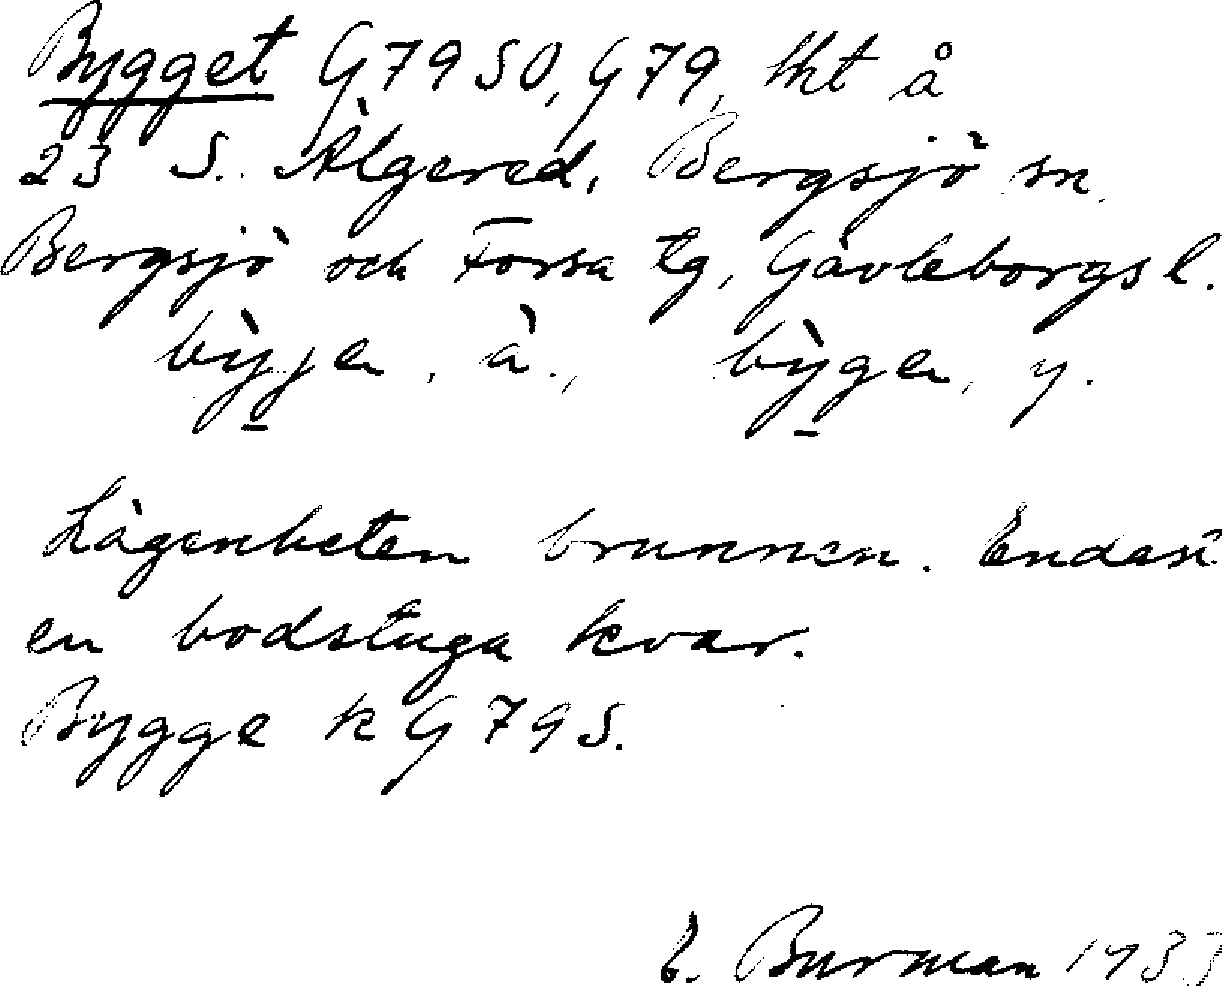 Bygget G79SO, G79, lht å
23 S. Älgered, Bergsjö sn.
Bergsjö och Forsa tg, Gävleborgs l.
bỳjjen, ä., bỳgen, y.
Lägenheten brunnen. Endast
en bodstuga kvar.
Bygge k G79S.
E. Burman 1933